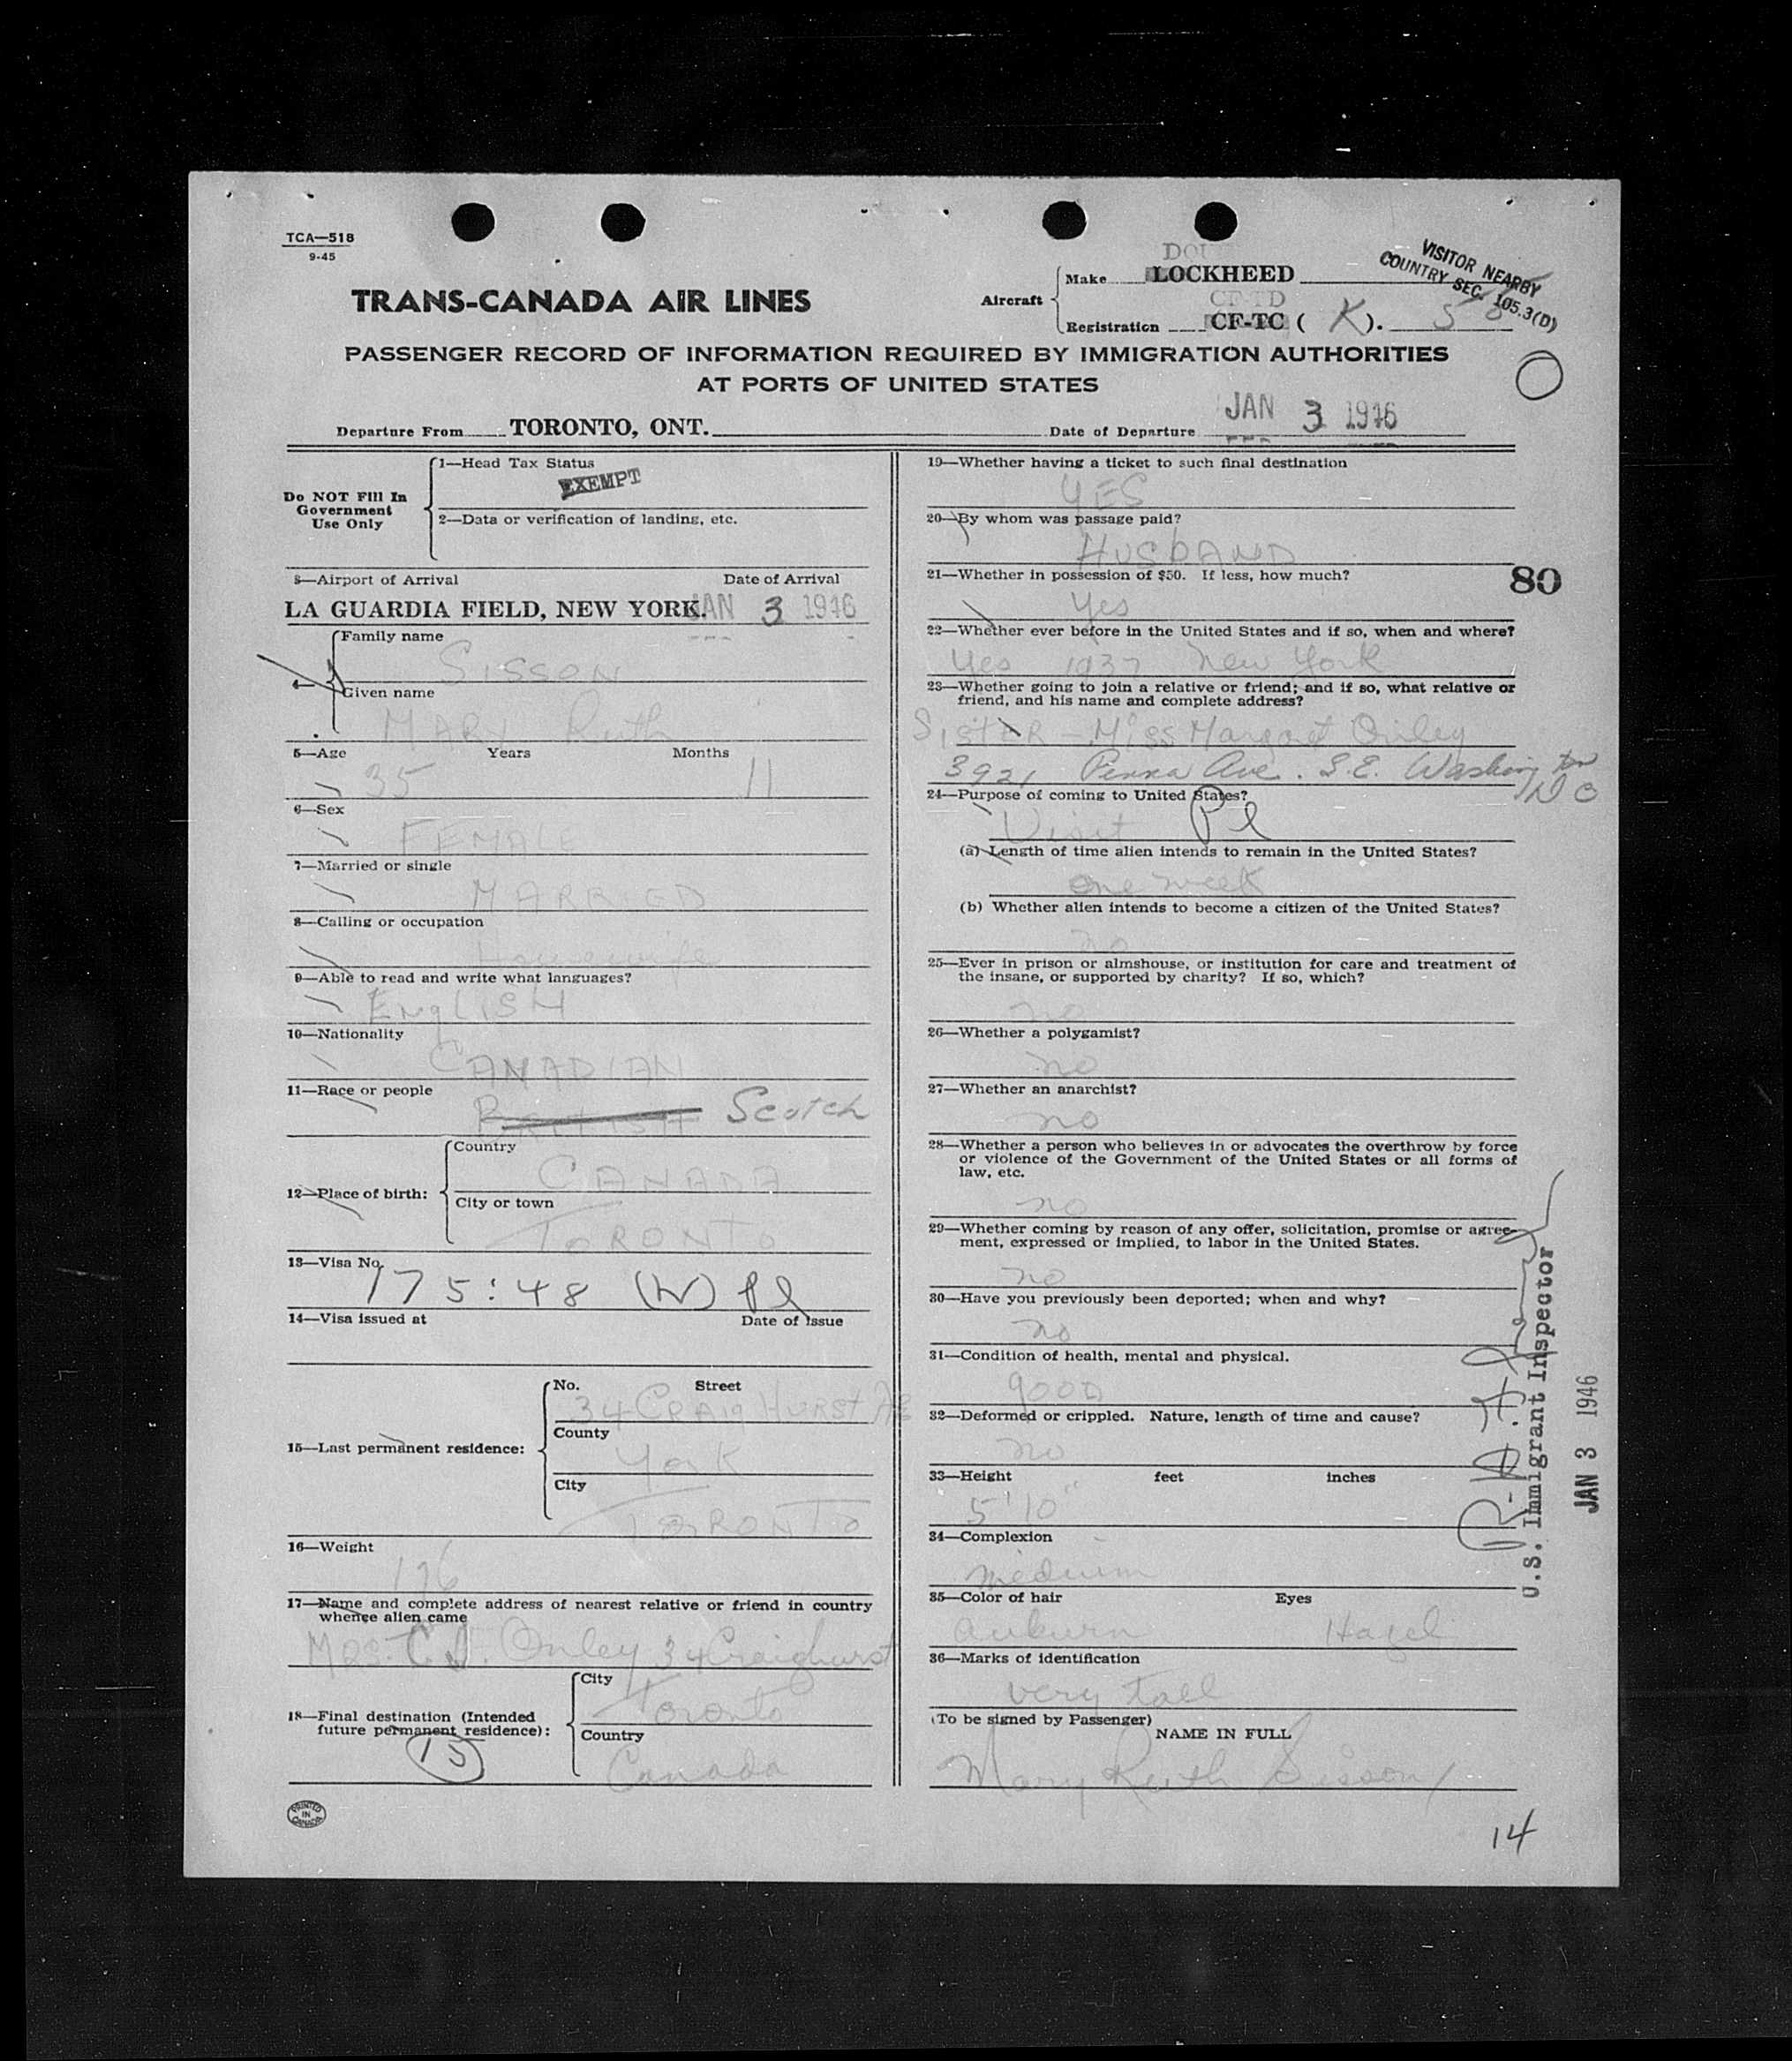 TCA—518
9-45
VISITOR NEARBY
COUNTRY SEC. 105.3(D)
TRANS-CANADA AIR LINES
Aircraft
Make LOCKHEED
Registration CF-TC ( K ).
PASSENGER RECORD OF INFORMATION REQUIRED BY IMMIGRATION AUTHORITIES
AT PORTS OF UNITED STATES
Departure From TORONTO, ONT. Date of Departure JAN 3 1946
Do NOT Fill In
Government
Use Only
1—Head Tax Status
EXEMPT
2—Data or verification of landing, etc.
3—Airport of Arrival Date of Arrival
LA GUARDIA FIELD, NEW YORK. JAN 3 1946
4—
Family name
SISSON
Given name
MARY Ruth
5—Age Years Months
35 11
6—Sex
FEMALE
7—Married or single
MARRIED
8—Calling or occupation
Housewife
9—Able to read and write what languages?
ENGLISH
10—Nationality
CANADIAN
11—Race or people
BRITISH Scotch
12—Place of birth:
Country
CANADA
City or town
TORONTO
13—Visa No.
175:48 (W) Pl
14—Visa issued at Date of Issue
15—Last permanent residence:
No. Street
34 CRAIGHURST AVE
County
York
City
TORONTO
16—Weight
176
17—Name and complete address of nearest relative or friend in country
whence alien came
MRS. C. Onley 34 Craighurst
18—Final destination (Intended
future permanent residence):
15
City
Toronto
Country
Canada
PRINTED
IN
CANADA
19—Whether having a ticket to such final destination
YES
20—By whom was passage paid?
HUSBAND
21—Whether in possession of $50. If less, how much?
80
Yes
22—Whether ever before in the United States and if so, when and where?
Yes 1937 New York
23—Whether going to join a relative or friend; and if so, what relative or
friend, and his name and complete address?
SISTER - Miss Margaret Onley
3921 Penna Ave. S.E. Washington
D C
24—Purpose of coming to United States?
Visit Pl
(a) Length of time alien intends to remain in the United States?
one week
(b) Whether alien intends to become a citizen of the United States?
no
25—Ever in prison or almshouse, or institution for care and treatment of
the insane, or supported by charity? If so, which?
no
26—Whether a polygamist?
no
27—Whether an anarchist?
no
28—Whether a person who believes in or advocates the overthrow by force
or violence of the Government of the United States or all forms of
law, etc.
no
29—Whether coming by reason of any offer, solicitation, promise or agree-
ment, expressed or implied, to labor in the United States.
no
30—Have you previously been deported; when and why?
no
31—Condition of health, mental and physical.
good
32—Deformed or crippled. Nature, length of time and cause?
no
33—Height feet inches
5' 10"
34—Complexion
medium
35—Color of hair Eyes
auburn Hazel
36—Marks of identification
very tall
(To be signed by Passenger)
NAME IN FULL
Mary Ruth Sisson
U.S. Immigrant Inspector
JAN 3 1946
14